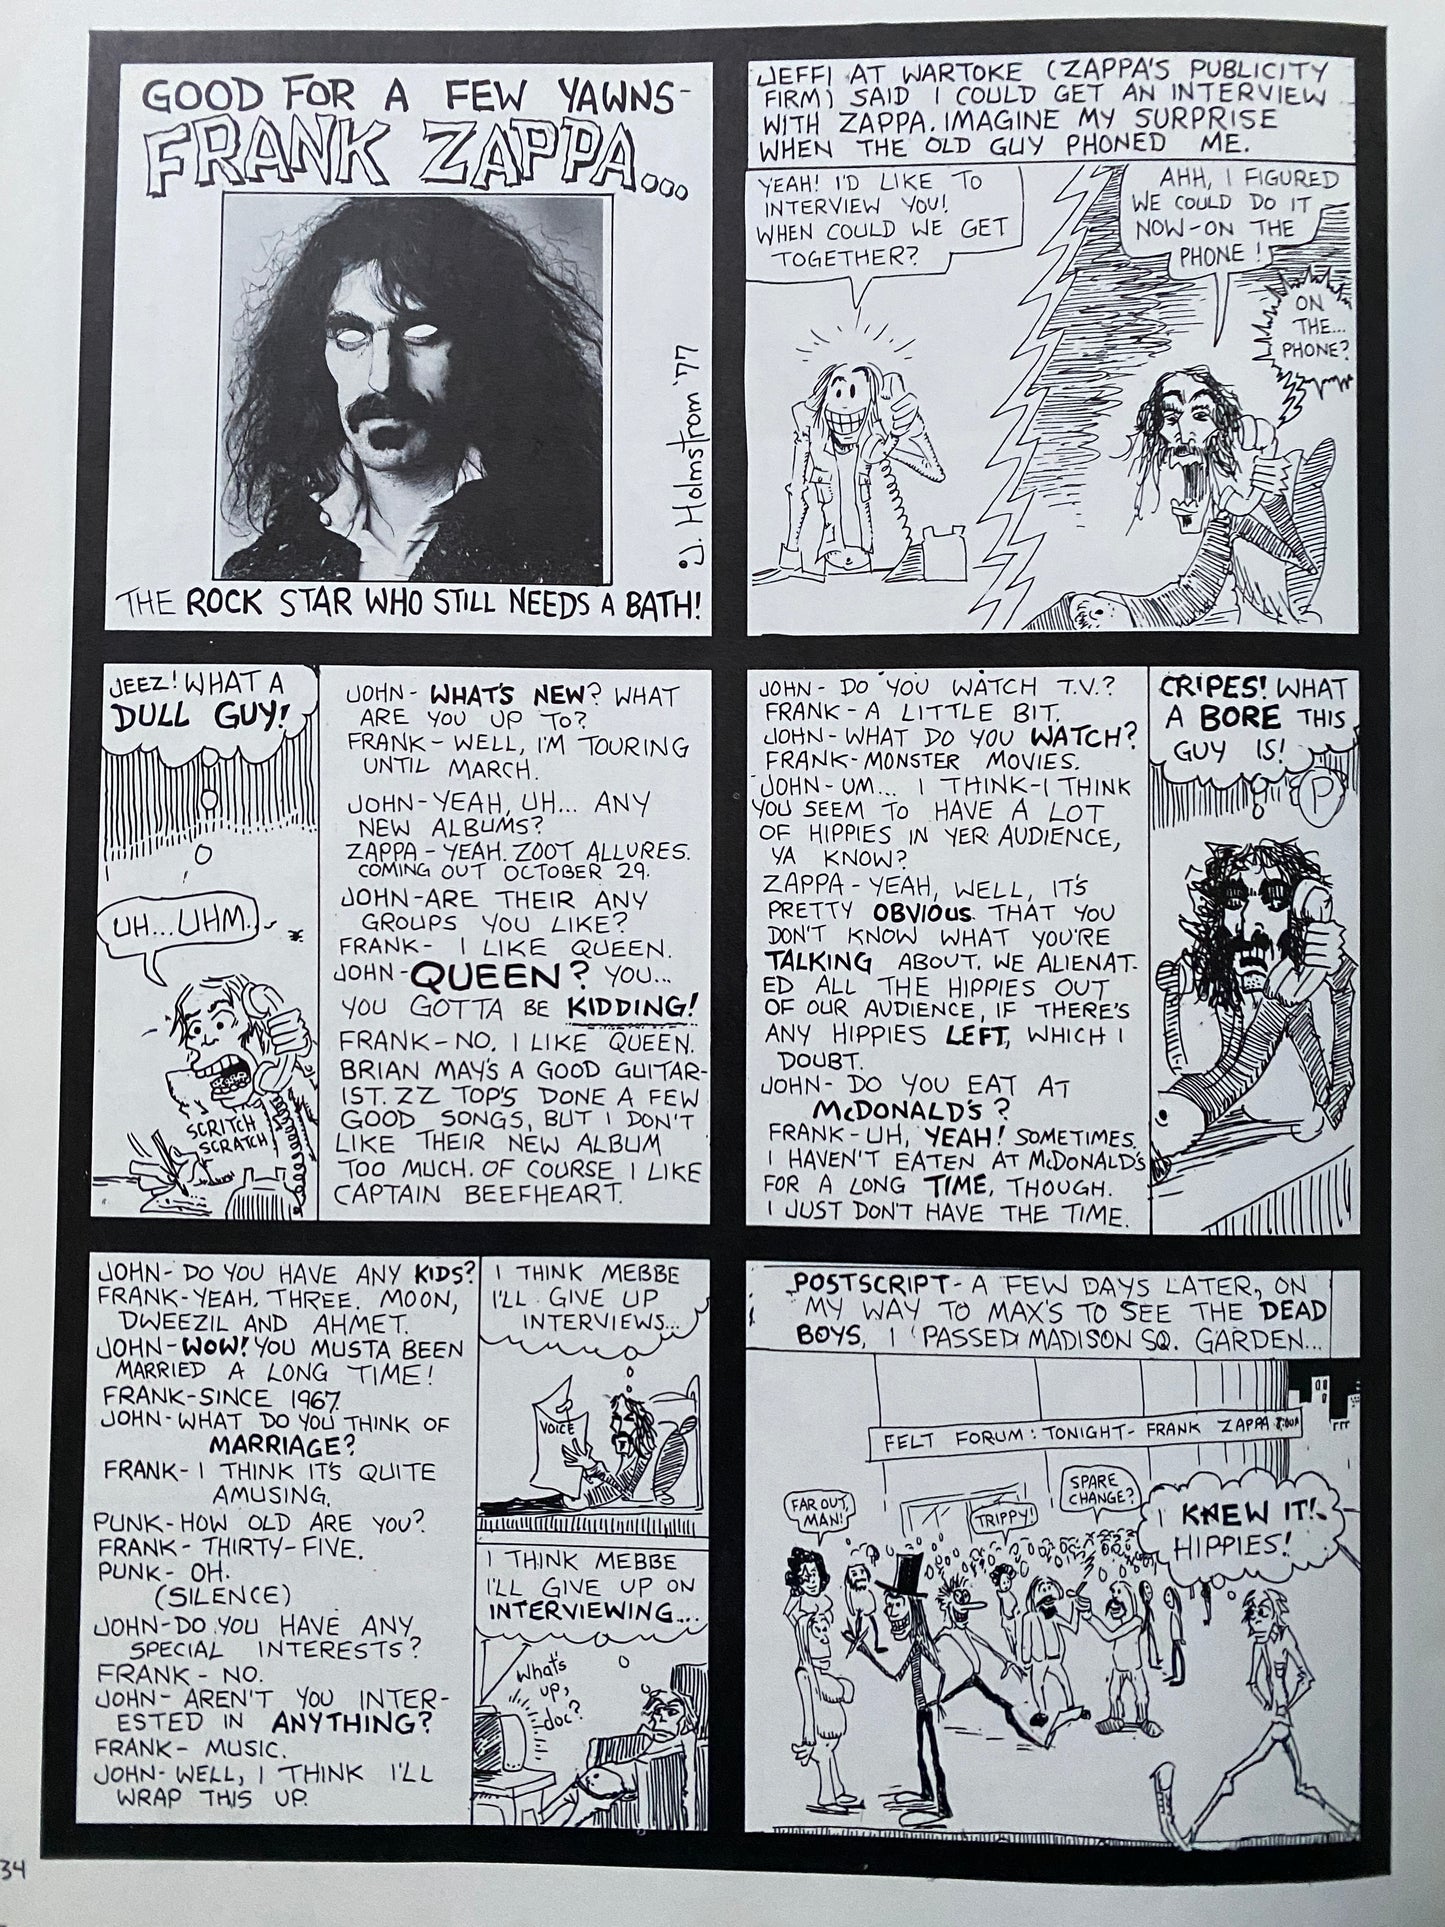 GOOD FOR A FEW YAWNS-
FRANK ZAPPA...
J. Holmstrom '77
THE ROCK STAR WHO STILL NEEDS A BATH!
JEFFI AT WARTOKE (ZAPPA'S PUBLICITY
FIRM) SAID I COULD GET AN INTERVIEW
WITH ZAPPA. IMAGINE MY SURPRISE
WHEN THE OLD GUY PHONED ME.
YEAH! I'D LIKE TO
INTERVIEW YOU!
WHEN COULD WE GET
TOGETHER?
AHH, I FIGURED
WE COULD DO IT
NOW-ON THE
PHONE!
ON
THE...
PHONE?
JEEZ! WHAT A
DULL GUY!
UH...UHM..
SCRITCH
SCRATCH
JOHN- WHAT'S NEW? WHAT
ARE YOU UP TO?
FRANK- WELL, I'M TOURING
UNTIL MARCH.
JOHN-YEAH, UH... ANY
NEW ALBUMS?
ZAPPA-YEAH. ZOOT ALLURES.
COMING OUT OCTOBER 29.
JOHN-ARE THEIR ANY
GROUPS YOU LIKE?
FRANK- I LIKE QUEEN.
JOHN-QUEEN? YOU...
YOU GOTTA BE KIDDING!
FRANK-NO. I LIKE QUEEN.
BRIAN MAY'S A GOOD GUITAR-
IST. ZZ TOP'S DONE A FEW
GOOD SONGS, BUT I DON'T
LIKE THEIR NEW ALBUM
TOO MUCH. OF COURSE I LIKE
CAPTAIN BEEFHEART.
JOHN- DO YOU WATCH T.V.?
FRANK-A LITTLE BIT.
JOHN-WHAT DO YOU WATCH?
FRANK-MONSTER MOVIES.
JOHN-UM... I THINK-I THINK
YOU SEEM TO HAVE A LOT
OF HIPPIES IN YER AUDIENCE,
YA KNOW?
ZAPPA-YEAH, WELL, IT'S
PRETTY OBVIOUS THAT YOU
DON'T KNOW WHAT YOU'RE
TALKING ABOUT. WE ALIENAT-
ED ALL THE HIPPIES OUT
OF OUR AUDIENCE, IF THERE'S
ANY HIPPIES LEFT, WHICH I
DOUBT.
JOHN- DO YOU EAT AT
McDONALD'S?
FRANK-UH, YEAH! SOMETIMES.
I HAVEN'T EATEN AT McDONALD'S
FOR A LONG TIME, THOUGH.
I JUST DON'T HAVE THE TIME.
CRIPES! WHAT
A BORE THIS
GUY IS!
P
JOHN-DO YOU HAVE ANY KIDS?
FRANK-YEAH. THREE. MOON,
DWEEZIL AND AHMET.
JOHN-WOW! YOU MUSTA BEEN
MARRIED A LONG TIME!
FRANK-SINCE 1967.
JOHN-WHAT DO YOU THINK OF
MARRIAGE?
FRANK-I THINK IT'S QUITE
AMUSING.
PUNK-HOW OLD ARE YOU?
FRANK-THIRTY-FIVE.
PUNK- OH.
(SILENCE)
JOHN-DO YOU HAVE ANY
SPECIAL INTERESTS?
FRANK-NO.
JOHN- AREN'T YOU INTER-
ESTED IN ANYTHING?
FRANK- MUSIC.
JOHN-WELL, I THINK I'LL
WRAP THIS UP.
I THINK MEBBE
I'LL GIVE UP
INTERVIEWS...
VOICE
I THINK MEBBE
I'LL GIVE UP ON
INTERVIEWING....
What's
up,
doc?
POSTSCRIPT-A FEW DAYS LATER, ON
MY WAY TO MAX'S TO SEE THE DEAD
BOYS, I PASSED MADISON SQ. GARDEN...
FELT FORUM: TONIGHT- FRANK ZAPPA
FAR OUT,
MAN!
TRIPPY!
SPARE
CHANGE?
I KNEW IT!
HIPPIES!
34